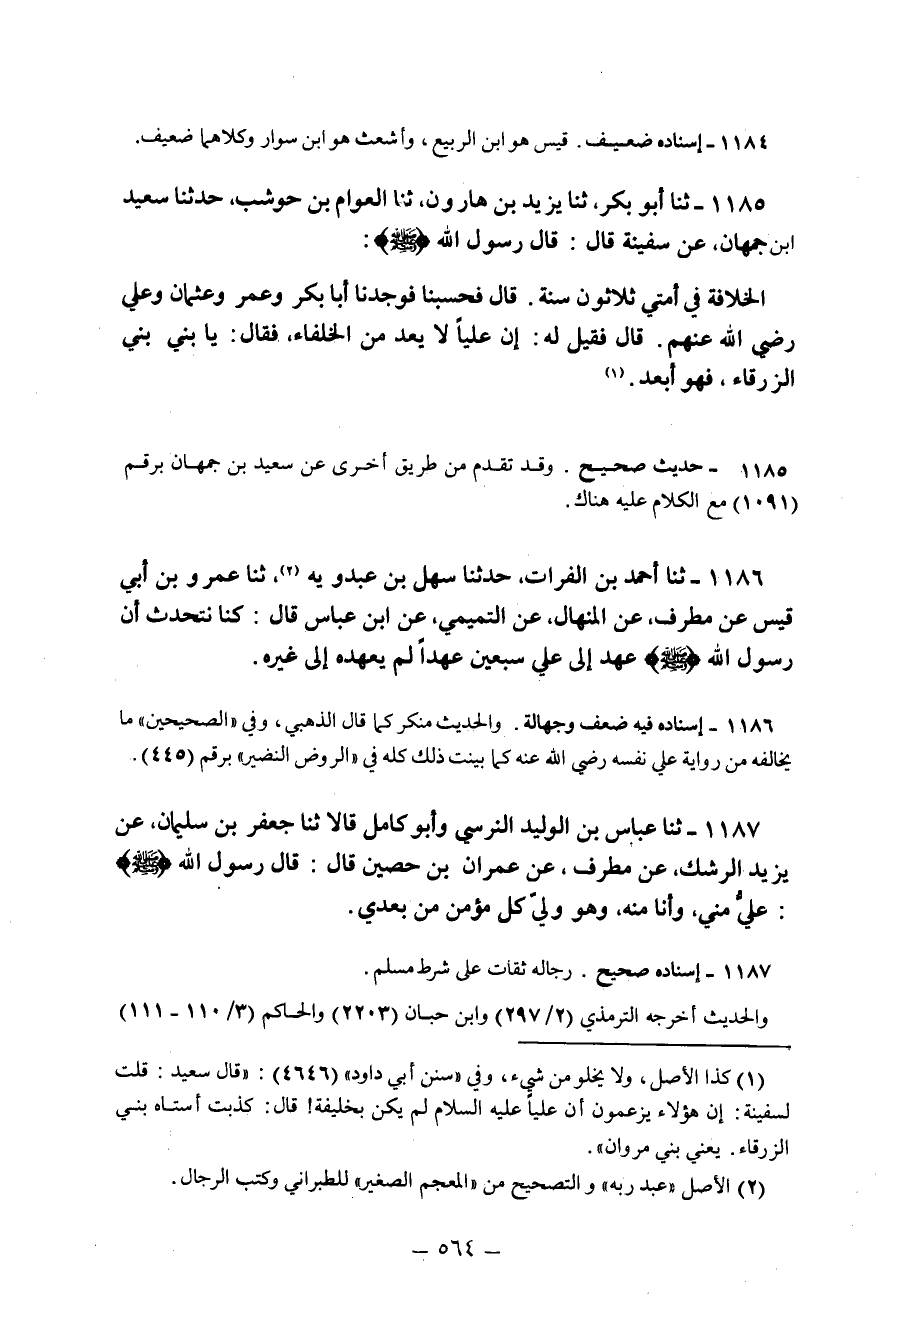 ١١٨٤ - إسناده ضعيف . قيس هو ابن الربيع ، وأشعث هو ابن سوار وكلاهما ضعيف.
١١٨٥ - ثنا أبو بكر، ثنا يزيد بن هارون، ثنا العوام بن حوشب، حدثنا سعيد
ابن جمهان، عن سفينة قال : قال رسول الله ﴿ﷺ﴾ :
الخلافة في أمتي ثلاثون سنة . قال فحسبنا فوجدنا أبا بكر وعمر وعثمان وعلي
رضي الله عنهم . قال فقيل له : إن علياً لا يعد من الخلفاء، فقال : يا بني بني
الزرقاء ، فهو أبعد . (١)
١١٨٥ - حديث صحيح . وقد تقدم من طريق أخرى عن سعيد بن جمهان برقم
(١٠٩١) مع الكلام عليه هناك.
١١٨٦ - ثنا أحمد بن الفرات، حدثنا سهل بن عبدو يه (٢)، ثنا عمر و بن أبي
قيس عن مطرف، عن المنهال، عن التميمي، عن ابن عباس قال : كنا نتحدث أن
رسول الله ﴿ﷺ﴾ عهد إلى علي سبعين عهداً لم يعهده إلى غيره.
١١٨٦ - إسناده فيه ضعف وجهالة . والحديث منكر كما قال الذهبي ، وفي «الصحيحين» ما
يخالفه من رواية علي نفسه رضي الله عنه كما بينت ذلك كله في «الروض النضير» برقم (٤٤٥) .
١١٨٧ - ثنا عباس بن الوليد النرسي وأبو كامل قالا ثنا جعفر بن سليمان، عن
يزيد الرشك، عن مطرف ، عن عمران بن حصين قال : قال رسول الله ﴿ﷺ﴾
: عليٌّ مني، وأنا منه، وهو وليّ كل مؤمن من بعدي.
١١٨٧ - إسناده صحيح . رجاله ثقات على شرط مسلم .
والحديث أخرجه الترمذي (٢/ ٢٩٧) وابن حبان (٢٢٠٣) والحاكم (٣/ ١١٠ - ١١١)
(١) كذا الأصل ، ولا يخلو من شيء ، وفي «سنن أبي داود» (٤٦٤٦) : «قال سعيد : قلت
لسفينة : إن هؤلاء يزعمون أن علياً عليه السلام لم يكن بخليفة! قال : كذبت أستاه بني
الزرقاء . يعني بني مروان» .
(٢) الأصل «عبد ربه» و التصحيح من «المعجم الصغير» للطبراني وكتب الرجال .
– ٥٦٤ –